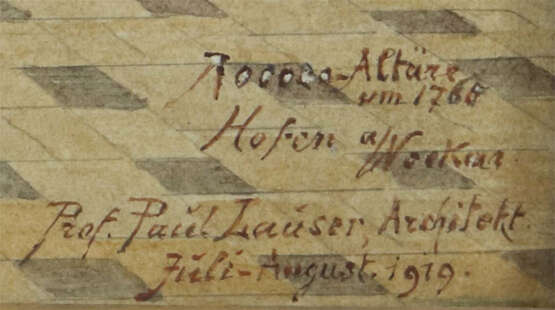 Rococo-Altäre
um 1766
Hofen a/Neckar.
Prof. Paul Lauser, Architekt.
Juli-August. 1919.